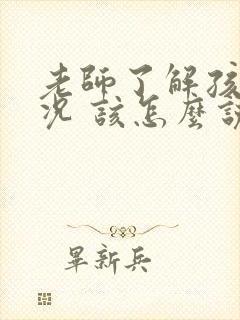 老師了解孩
況 該怎麼說
畢新兵